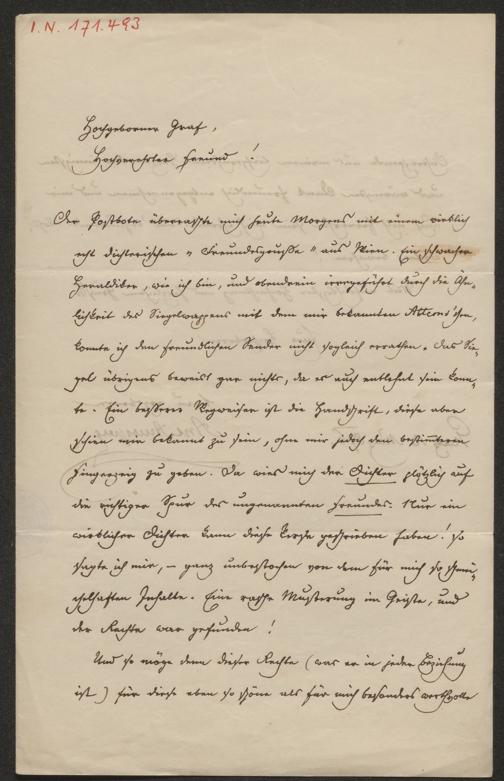 I.N. 171.493
Hochgeborner Graf,
Hochverehrter Freund!
Der Postbote überraschte mich heute Morgens mit einem wirklich
echt dichterischen „Freundesgruße“ aus Wien. Ein schwacher
Heraldiker, wie ich bin, und obendrein irregeführt durch die Äh-
lichkeit des Siegelwappens mit dem mir bekannten
konnte ich den freundlichen Sender nicht sogleich errathen. Das Sie-
gel übrigens beweist gar nichts, da es auch entlehnt sein konn-
te. Ein besserer Wegweiser ist die Handschrift, diese aber
schien mir bekannt zu sein, ohne mir jedoch den bestimmteren
Fingerzeig zu geben. Da wies mich der Dichter plötzlich auf
die richtige Spur des ungenannten Freundes. Nur ein
wirklicher Dichter kann diese Verse geschrieben haben! so
sagte ich mir, – ganz unbestochen von dem für mich so schmei-
chelhaften Inhalte. Eine rasche Musterung im Geiste, und
der Rechte war gefunden!
Und so möge denn dieser Rechte (was er in jeder Beziehung
ist) für diese eben so schöne als für mich besonders werthvolle